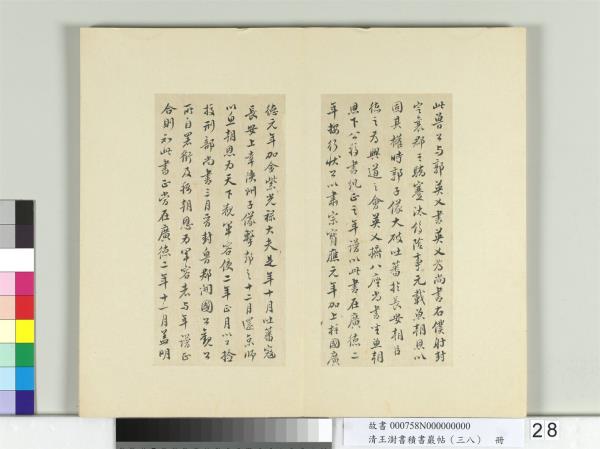 此魯公與郭英乂書英乂為尚書右僕射封
定襄郡王驕蹇沬財陰事元載魚朝恩以
固其權時郭子儀大破吐蕃於長安相臣
德之為興道之會英乂攝八座尚書坐魚朝
恩下公移書糾正之年譜以此書在廣德二
年按行狀公以肅宗寶應元年加上柱國廣
德元年加金紫光祿大夫是年十月吐蕃寇
長安上幸陝州子儀擊郤之十二月還京師
以魚朝恩為天下觀軍容使二年正月以公檢
校刑部尚書三月晉封魯郡開國公觀公
所自署銜及稱朝恩為軍容者與年譜正
合則知此書正當在廣德二年十一月蓋明
故書 000758N000000000
清王澍書積書巖帖(三八) 冊
28